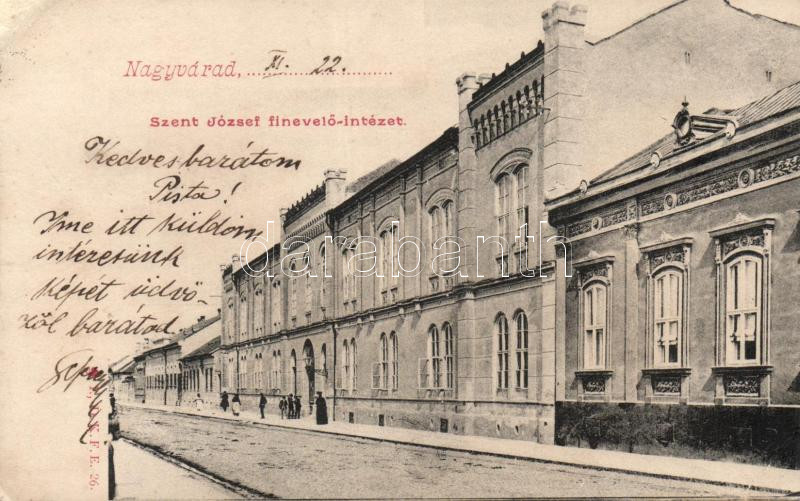 Nagyvárad, XI. 22.
Szent József finevelő-intézet.
Kedves barátom
Pista!
Ime itt küldöm
intézetünk
képét üdvö-
zöl barátod
darabanth.com
K. F. E. 26.